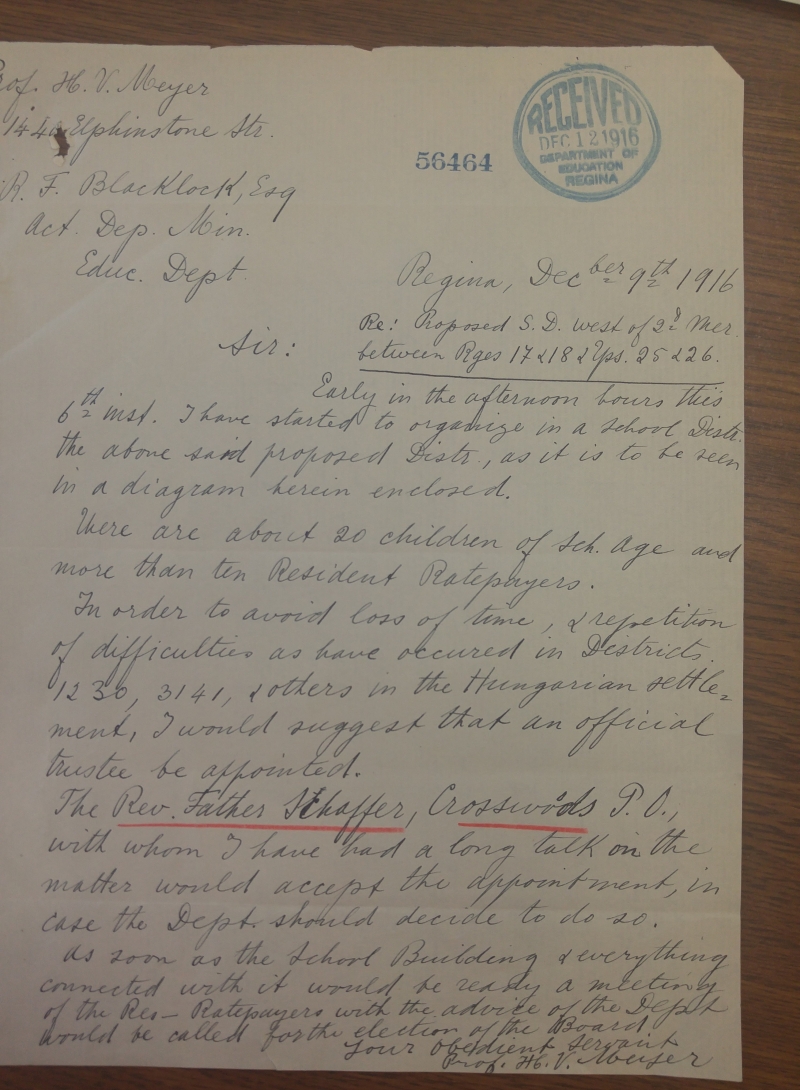 Prof. H. V. Meyer
1440 Elphinstone Str.
RECEIVED
DEC 12 1916
DEPARTMENT OF
EDUCATION
REGINA
56464
R. F. Blacklock, Esq
Act. Dep. Min.
Educ. Dept.
Regina, Dec ber 9th 1916
Re: Proposed S. D. west of 2d Mer.
between Rges 17 & 18 & Tps. 25 & 26.
Sir:
Early in the afternoon hours this
6th inst. I have started to organize in a School Distr.
the above said proposed Distr., as it is to be seen
in a diagram herein enclosed.
There are about 20 children of Sch. Age and
more than ten Resident Ratepayers.
In order to avoid loss of time, & repetition
of difficulties as have occured in Districts
1230, 3141, & others in the Hungarian settle=
ment, I would suggest that an official
trustee be appointed.
The Rev. Father Schaffer, Crosswoods P. O.,
with whom I have had a long talk on the
matter would accept the appointment, in
case the Dept. should decide to do so.
As soon as the School Building & everything
connected with it would be ready a meeting
of the Res- Ratepayers with the advice of the Dept
would be called for the election of the Board.
Your Obedient Servant
Prof. H. V. Meyer